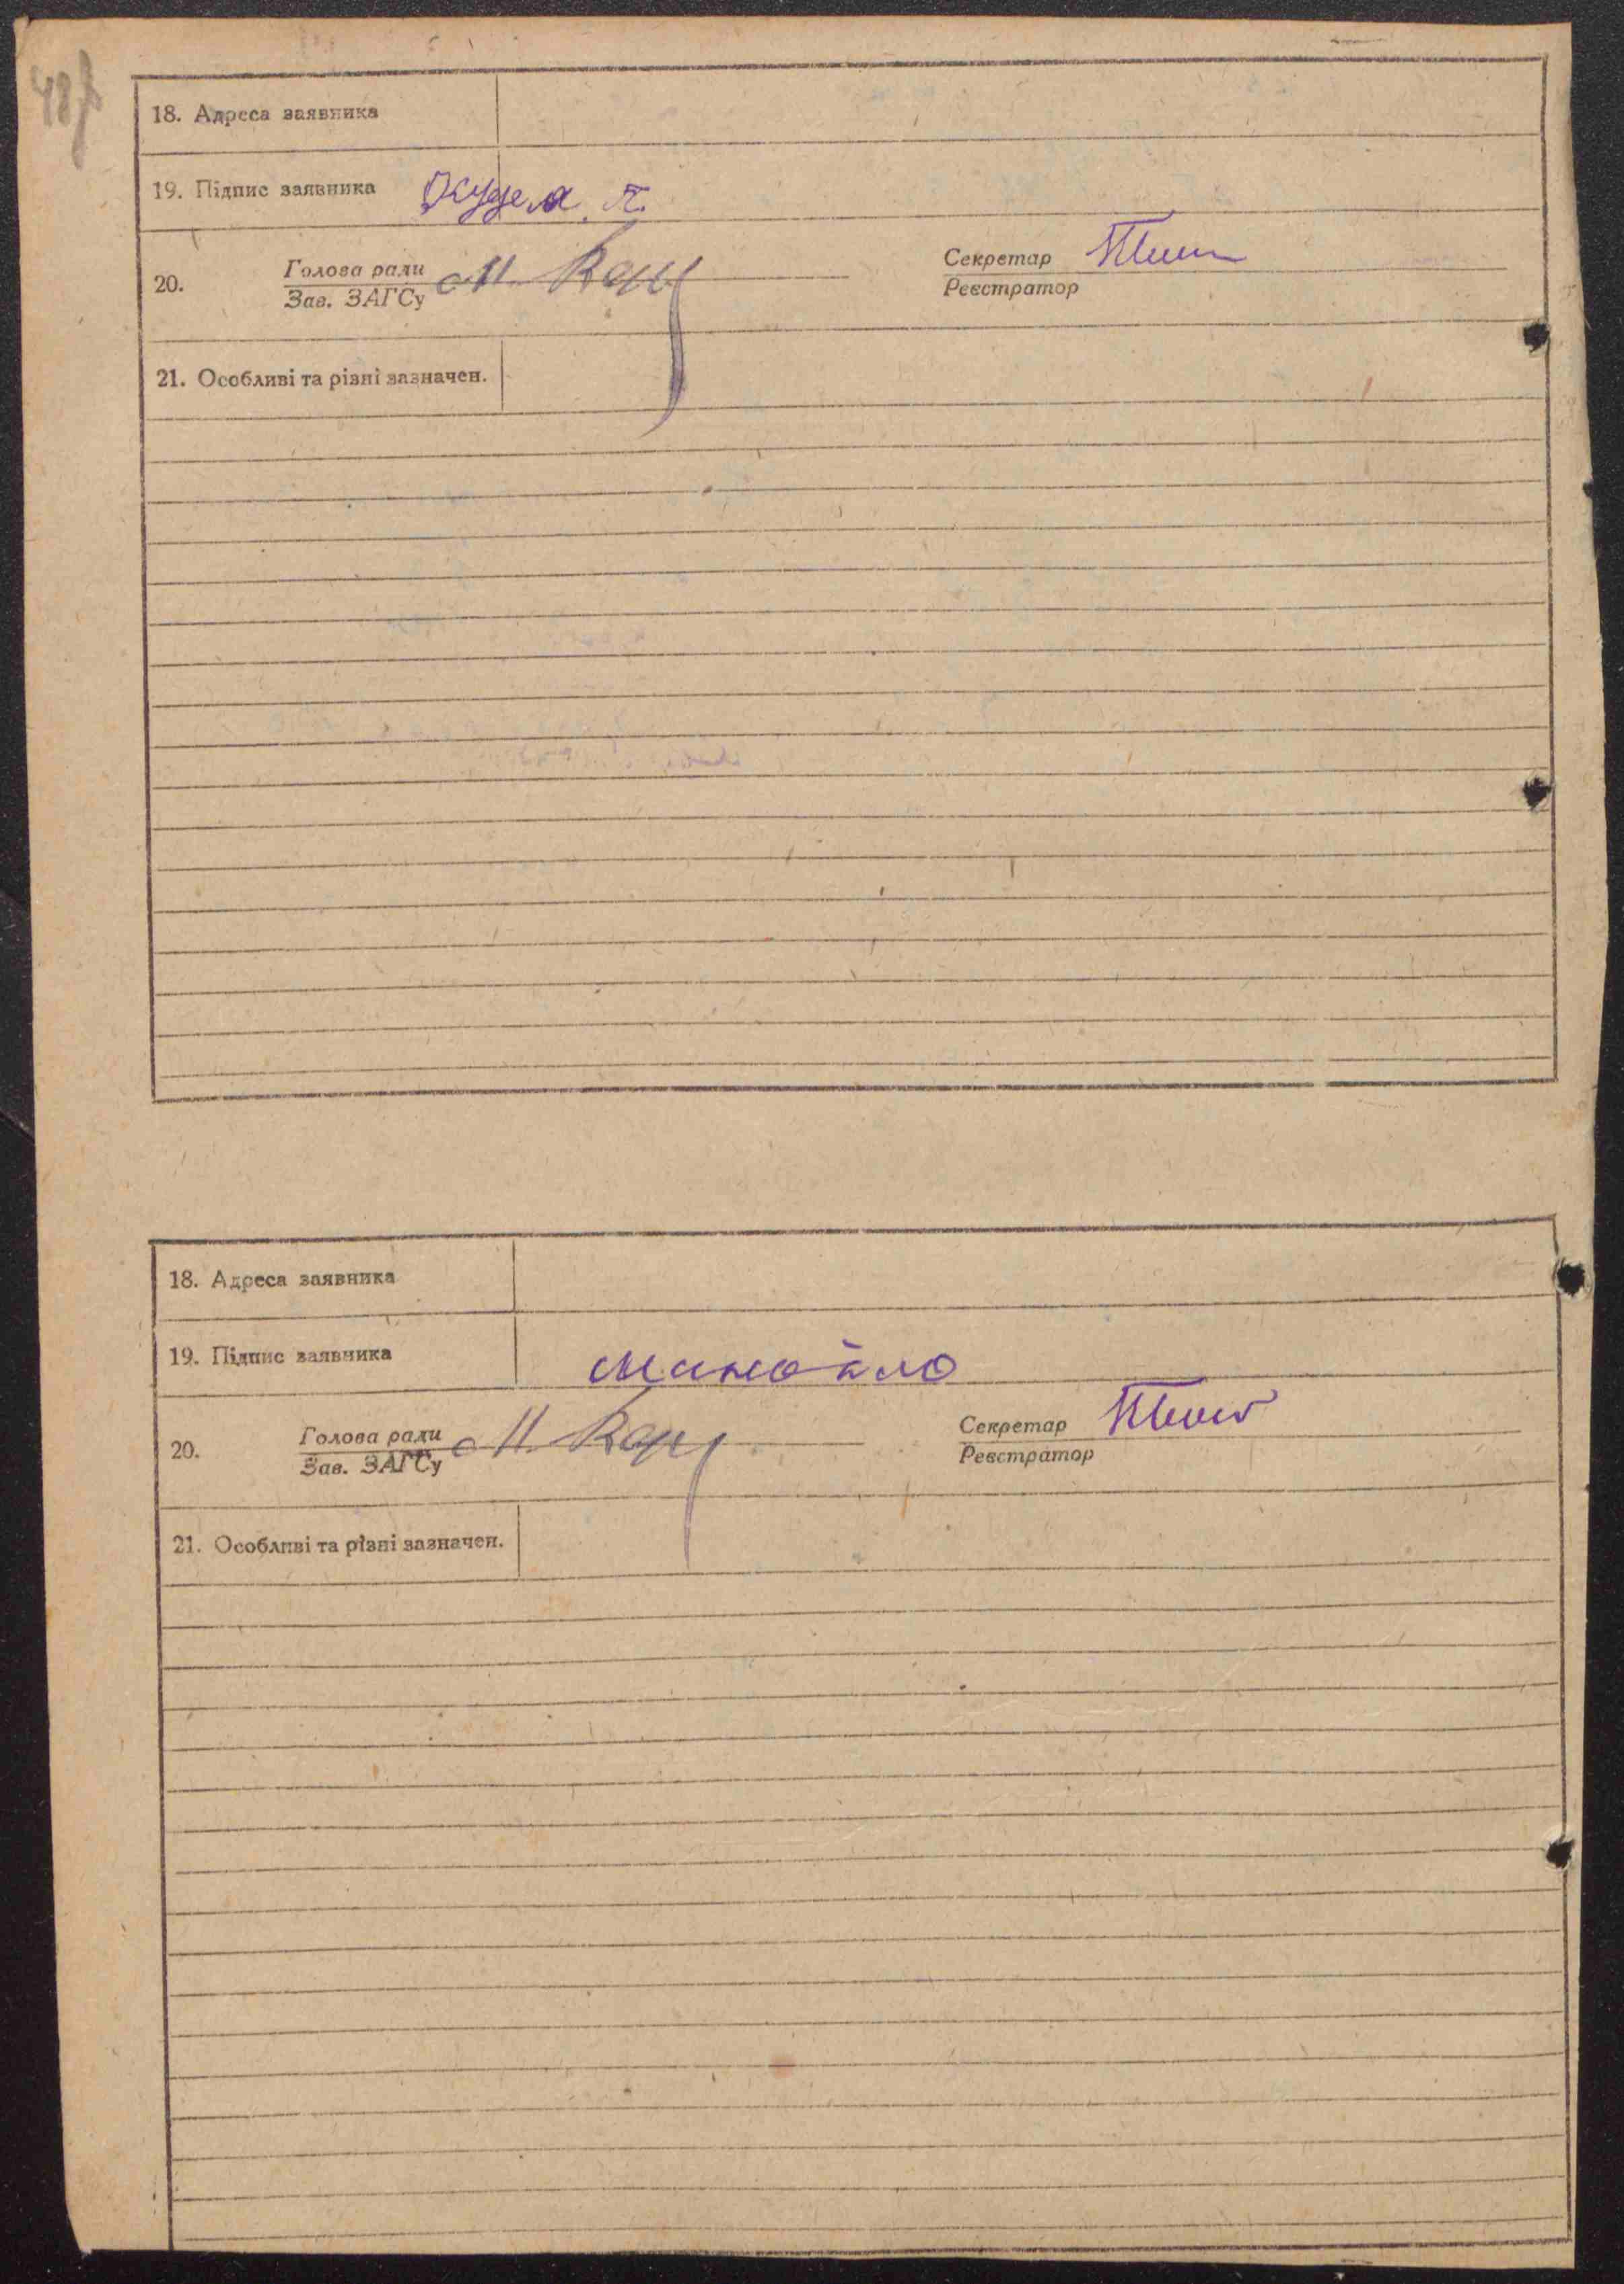 18. Адреса заявника
19. Підпис заявника
20. Голова ради Секретар
Зав. ЗАГСу Реєстратор
21. Особливі та різні зазначен.
18. Адреса заявника
19. Підпис заявника Минойло
20. Голова ради Секретар
Зав. ЗАГСу Реєстратор
21. Особливі та різні зазначен.